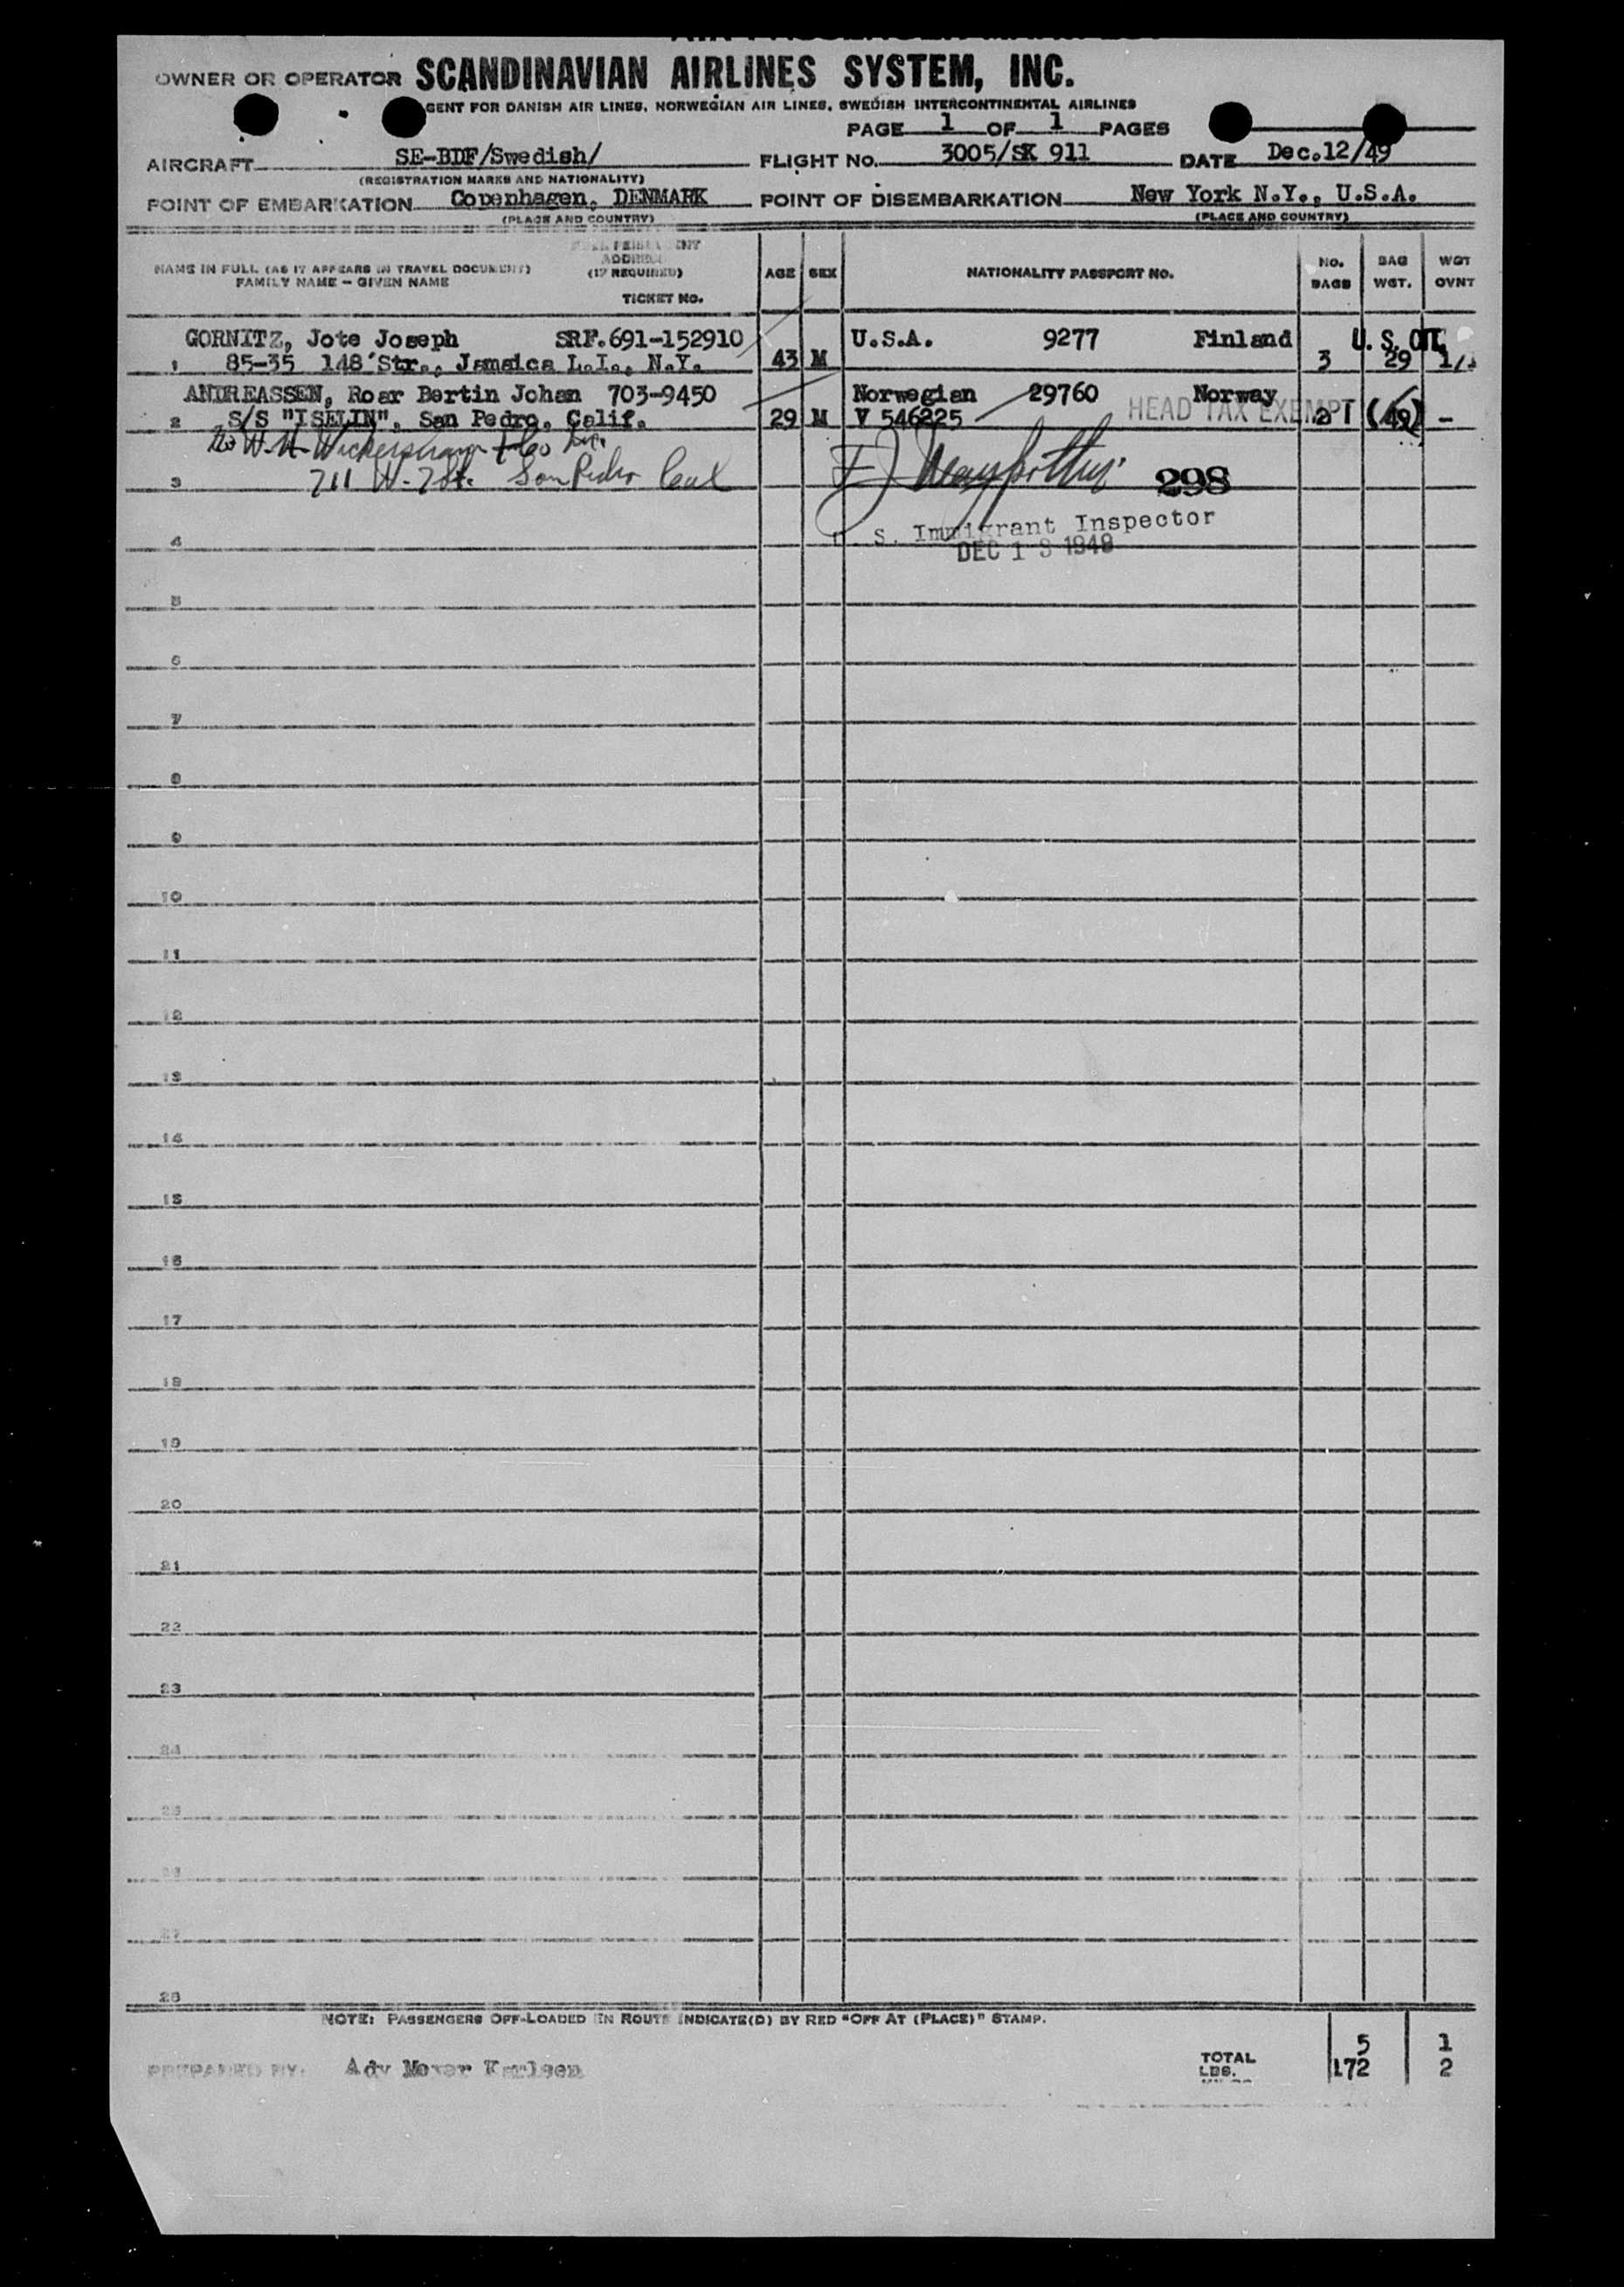 OWNER OR OPERATOR SCANDINAVIAN AIRLINES SYSTEM, INC.
GENT FOR DANISH AIR LINES, NORWEGIAN AIR LINES, SWEDISH INTERCONTINENTAL AIRLINES
PAGE 1 OF 1 PAGES
AIRCRAFT SE-BDF/Swedish/ FLIGHT No. 3005/SK 911 DATE Dec.12/49
(REGISTRATION MARKS AND NATIONALITY)
POINT OF EMBARKATION Copenhagen, DENMARK POINT OF DISEMBARKATION New York N.Y., U.S.A.
(PLACE AND COUNTRY) (PLACE AND COUNTRY)
ADDRESS
NAME IN FULL (AS IT APPEARS IN TRAVEL DOCUMENT) (IF REQUIRED) AGE SEX NATIONALITY PASSPORT NO. NO. BAG WGT
FAMILY NAME - GIVEN NAME BAGS WGT. OVNT
TICKET NO.
GORNITZ, Jote Joseph SRF.691-152910 U.S.A. 9277 Finland U. S. CIT.
1 85-35 148'Str., Jamaica L.I., N.Y. 43 M 3 29 1/1
ANDREASSEN, Roar Bertin Johan 703-9450 Norwegian 29760 Norway
2 S/S "ISELIN", San Pedro, Calif. 29 M V 546225 HEAD TAX EXEMPT 2 (49) -
W. H. Wickersham & Co Inc.
3 711 W. 7 St. San Pedro Cal 298
S. Immigrant Inspector
4 DEC 13 1949
5
6
7
8
9
10
11
12
13
14
15
16
17
18
19
20
21
22
23
24
25
26
27
28
NOTE: PASSENGERS OFF-LOADED EN ROUTE INDICATE(D) BY RED "OFF AT (PLACE)" STAMP.
5 1
PREPARED BY: Adv Karlsen TOTAL LBS. 172 2